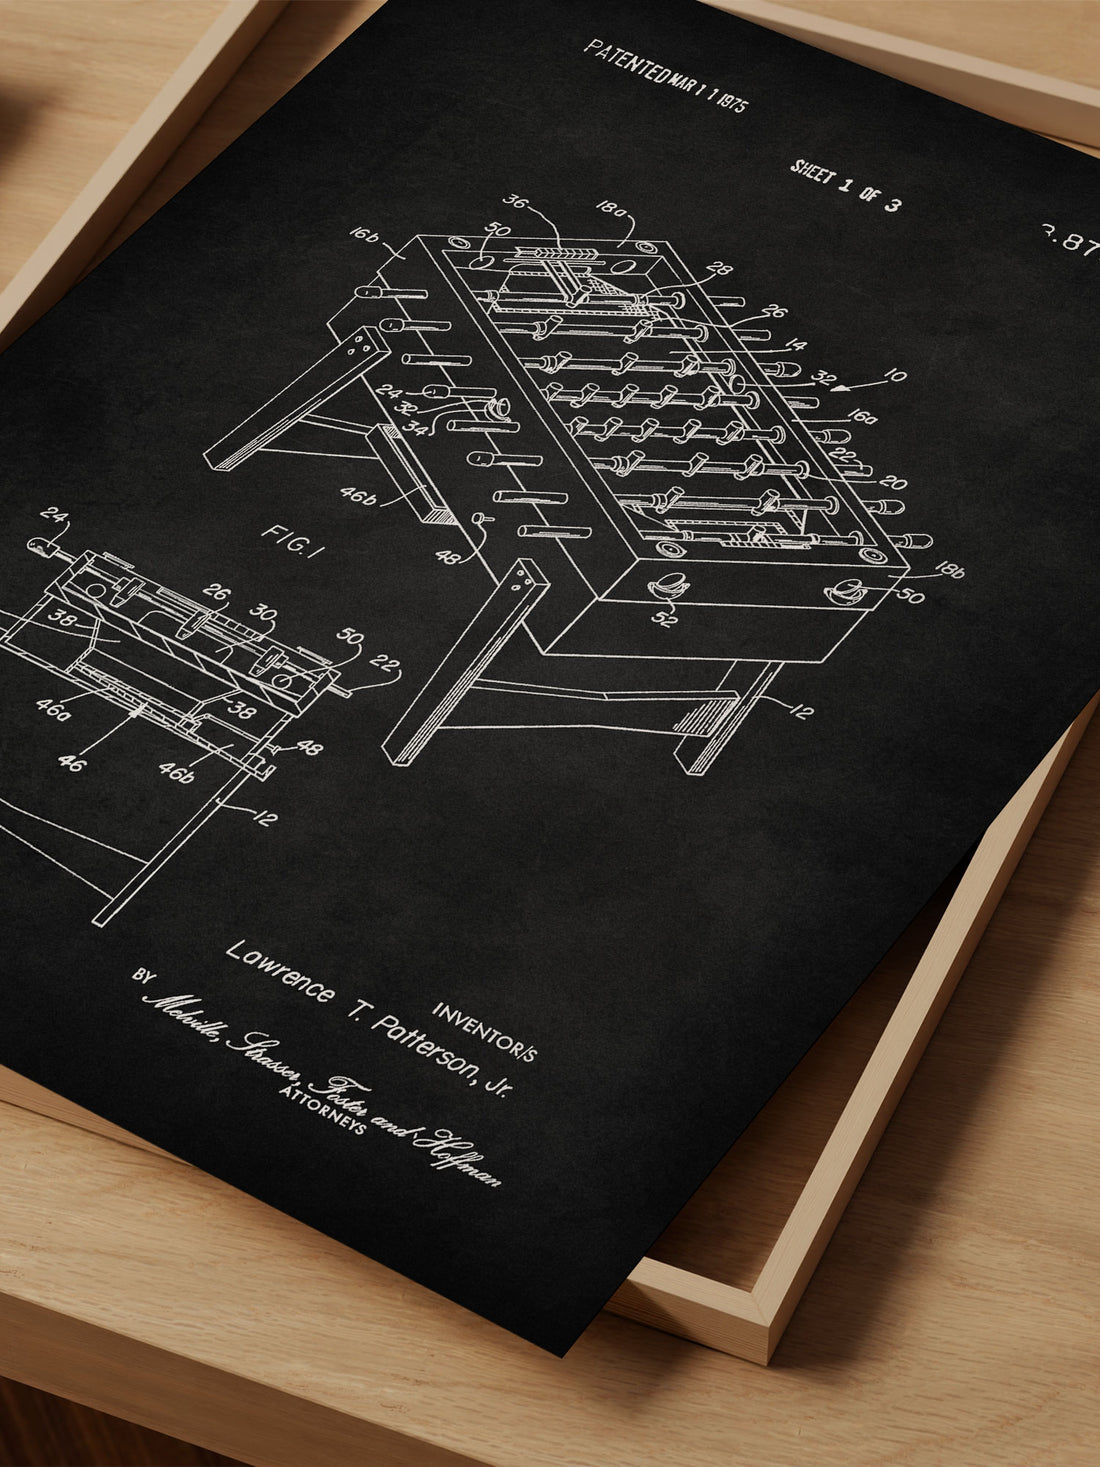 PATENTED MAR 11 1975
SHEET 1 OF 3
3.87
36
18a
50
16b
28
26
14
32
10
24
32
34
16a
22
20
46b
48
18b
50
52
12
FIG. 1
24
26
30
38
50
22
46a
38
46
46b
48
12
INVENTOR/S
Lawrence T. Patterson, Jr.
BY Melville, Strasser, Foster and Hoffman
ATTORNEYS